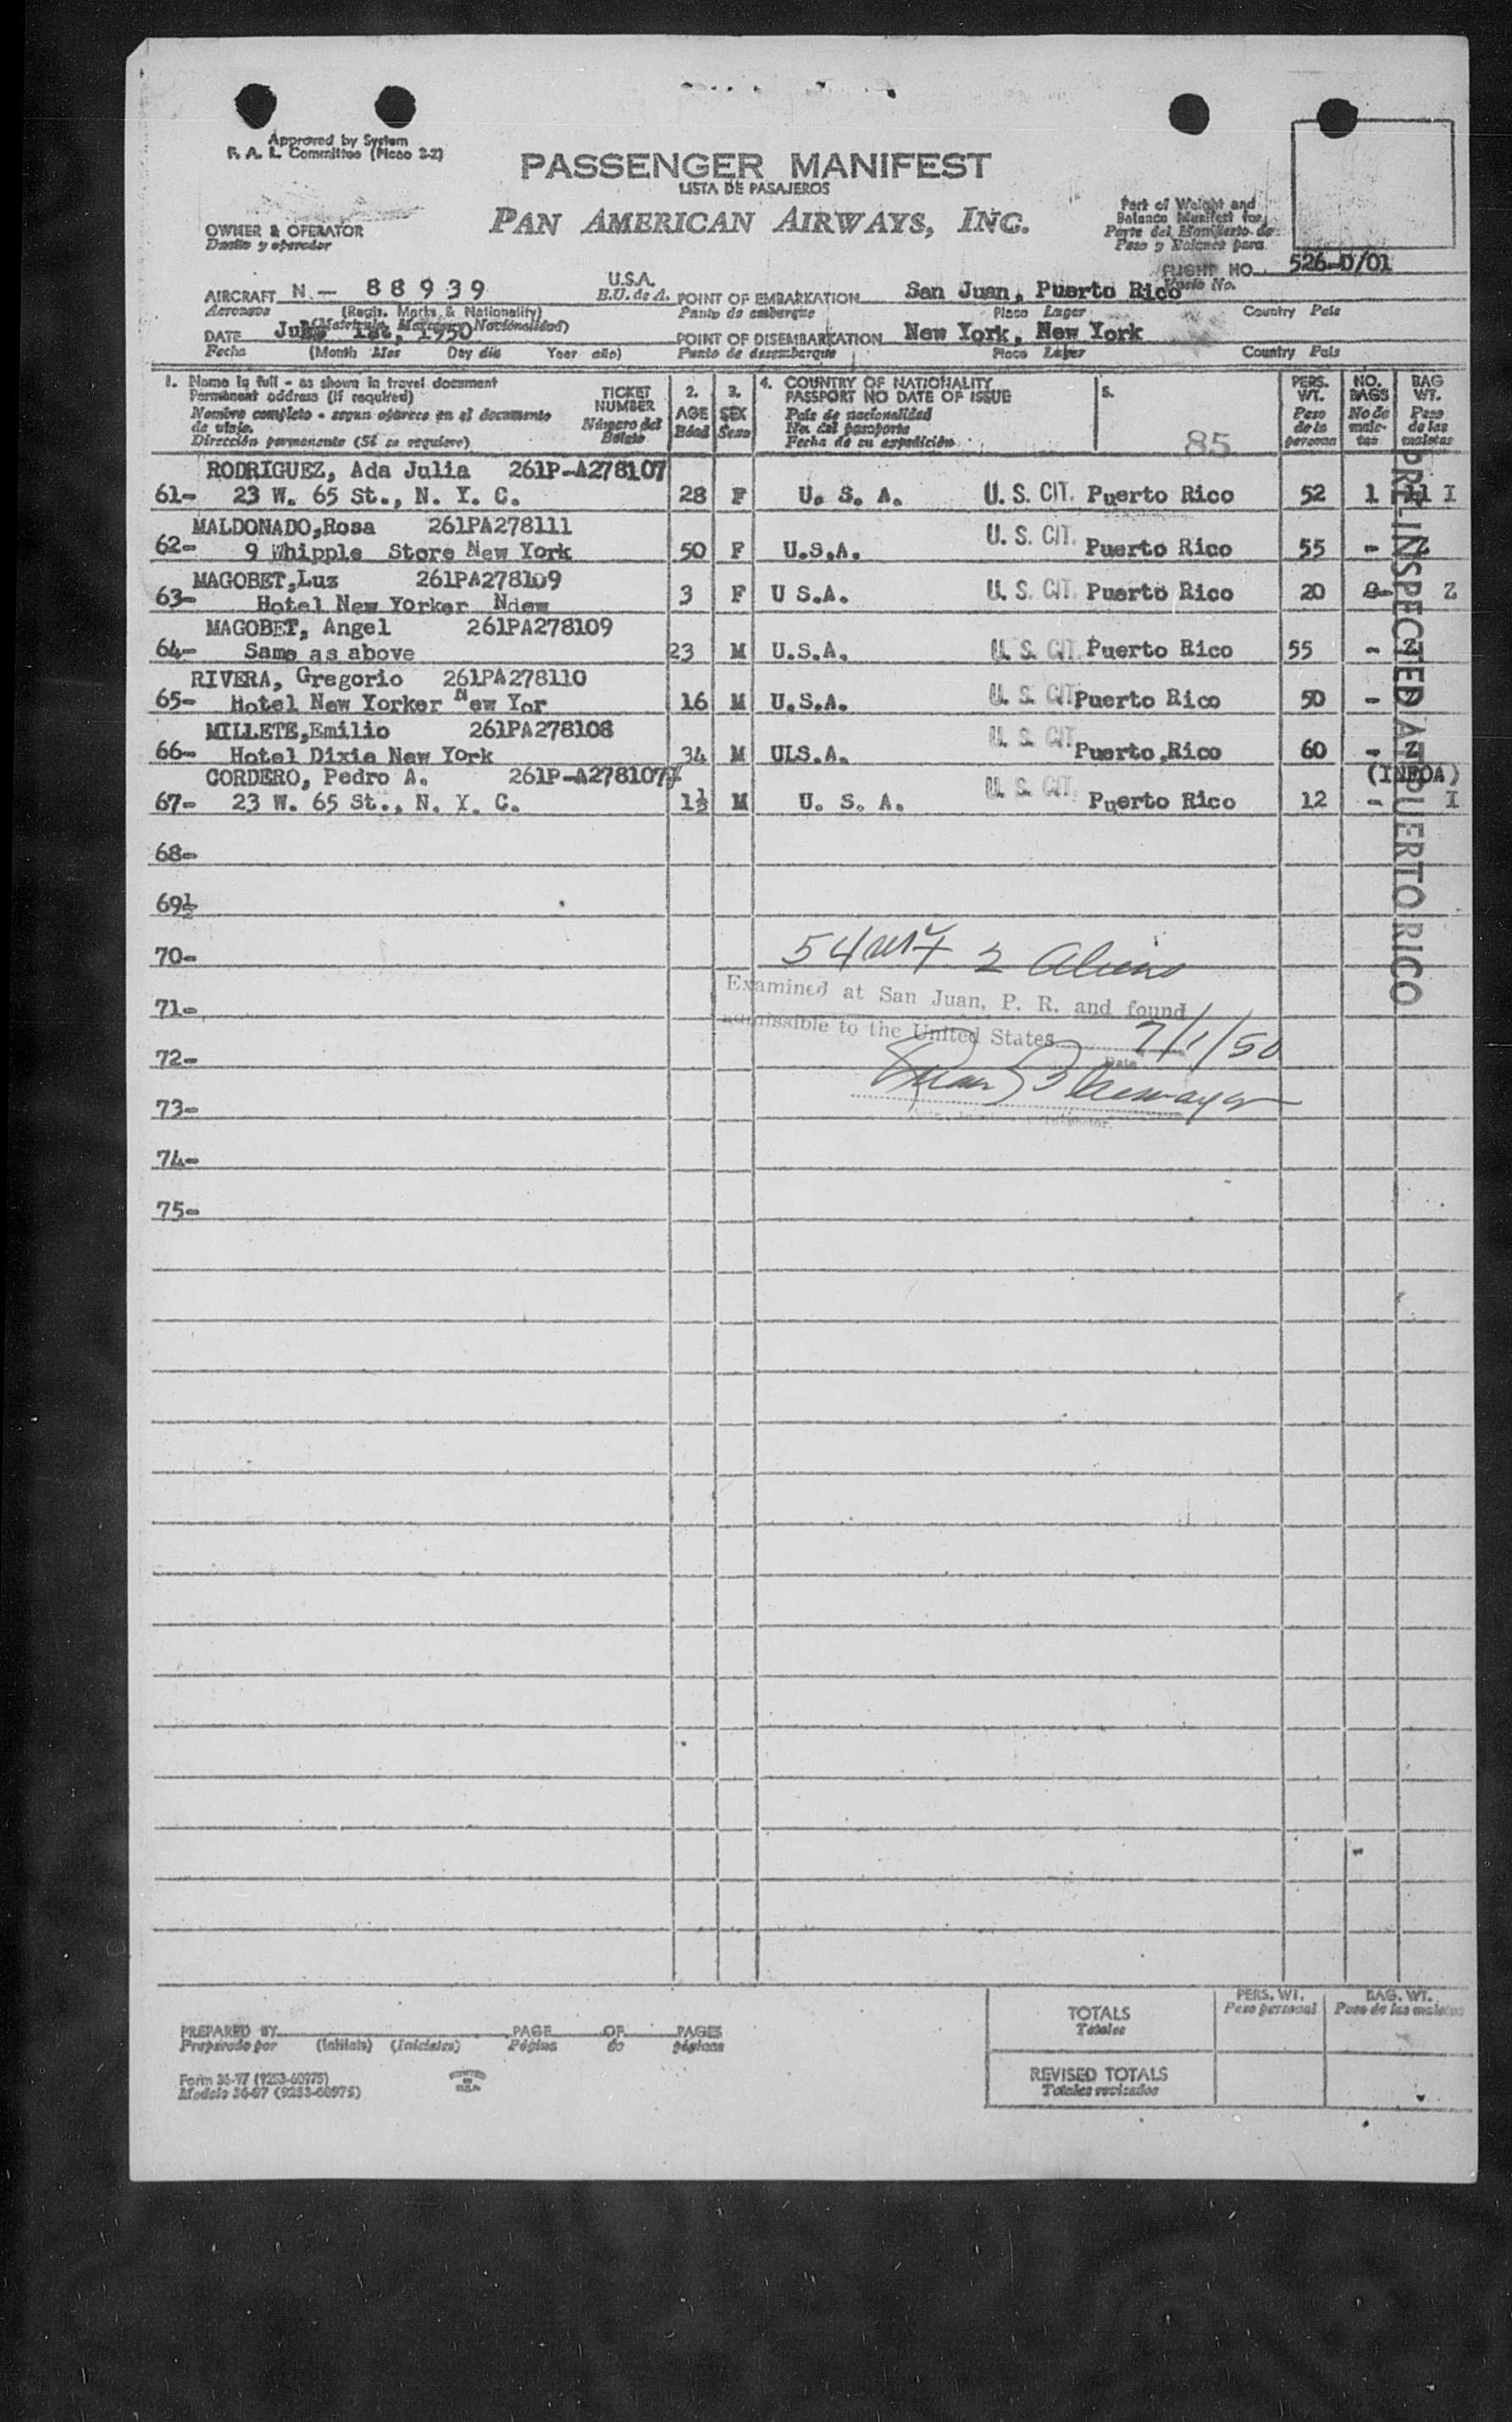 Approved by System
F. A. L. Committee (Picao 3-2)
PASSENGER MANIFEST
LISTA DE PASAJEROS
PAN AMERICAN AIRWAYS, INC.
OWNER & OPERATOR
Dueño y operador
Part of Weight and
Balance Manifest for
Parte del Manifiesto de
Peso y Balance para
FLIGHT NO. 526-D/01
Vuelo No.
AIRCRAFT N - 88939 U.S.A.
Aeronave (Regis. Marks & Nationality) E.U. de A.
(Matricula Marcas y Nacionalidad)
POINT OF EMBARKATION San Juan, Puerto Rico
Punto de embarque Place Lugar Country Pais
DATE 1st, 1950
Fecha (Month Mes Day dia Year año)
POINT OF DISEMBARKATION New York, New York
Punto de desembarque Place Lugar Country Pais
1. Name in full - as shown in travel document
Permanent address (if required)
Nombre completo - segun aparece en el documento
de viaje.
Dirección permanente (Si se requiere)
TICKET
NUMBER
Número del
Boleto
2.
AGE
Edad
3.
SEX
Sexo
4. COUNTRY OF NATIONALITY
PASSPORT NO DATE OF ISSUE
País de nacionalidad
No. del pasaporte
Fecha de su expedición
5.
85
PERS.
WT.
Peso
de la
persona
NO.
BAGS
No de
male-
tas
BAG
WT.
Peso
de las
maletas
RODRIGUEZ, Ada Julia 261P-A278107
61- 23 W. 65 St., N. Y. C. 28 F U. S. A. U. S. CIT. Puerto Rico 52 1 11 I
MALDONADO,Rosa 261PA278111
62- 9 Whipple Store New York 50 F U.S.A. U. S. CIT. Puerto Rico 55 - Z
MAGOBET,Luz 261PA278109
63- Hotel New Yorker Ndew 3 F U S.A. U. S. CIT. Puerto Rico 20 Z
MAGOBET, Angel 261PA278109
64- Same as above 23 M U.S.A. U. S. CIT. Puerto Rico 55 - Z
RIVERA, Gregorio 261PA278110
65- Hotel New Yorker New Yor 16 M U.S.A. U. S. CIT. Puerto Rico 50 -
MILLETE,Emilio 261PA278108
66- Hotel Dixie New York 34 M ULS.A. U. S. CIT. Puerto,Rico 60 - Z
CORDERO, Pedro A. 261P-A278107 (INFOA)
67- 23 W. 65 St., N. Y. C. 1½ M U. S. A. U. S. CIT. Puerto Rico 12 - I
PRE-INSPECTED AT PUERTO RICO
68-
69½
70-
2 Aliens
Examined at San Juan, P. R. and found
71-
admissible to the United States 7/1/50
Date
72-
73-
74-
75-
PREPARED BY PAGE OF PAGES
Preparado por (Initials) (Iniciales) Página de páginas
Form 36-97 (9253-60975)
Modelo 36-97 (9253-60975)
PERS. WT.
Peso personal
BAG. WT.
Peso de las maletas
TOTALS
Totales
REVISED TOTALS
Totales revisados